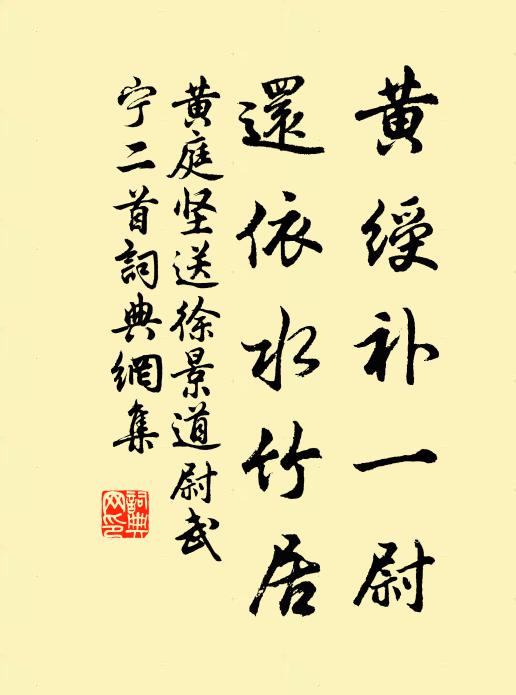 黄綬补一尉
還依水竹居
黄庭坚送徐景道尉武
宁二首詞典網集
詞典网印